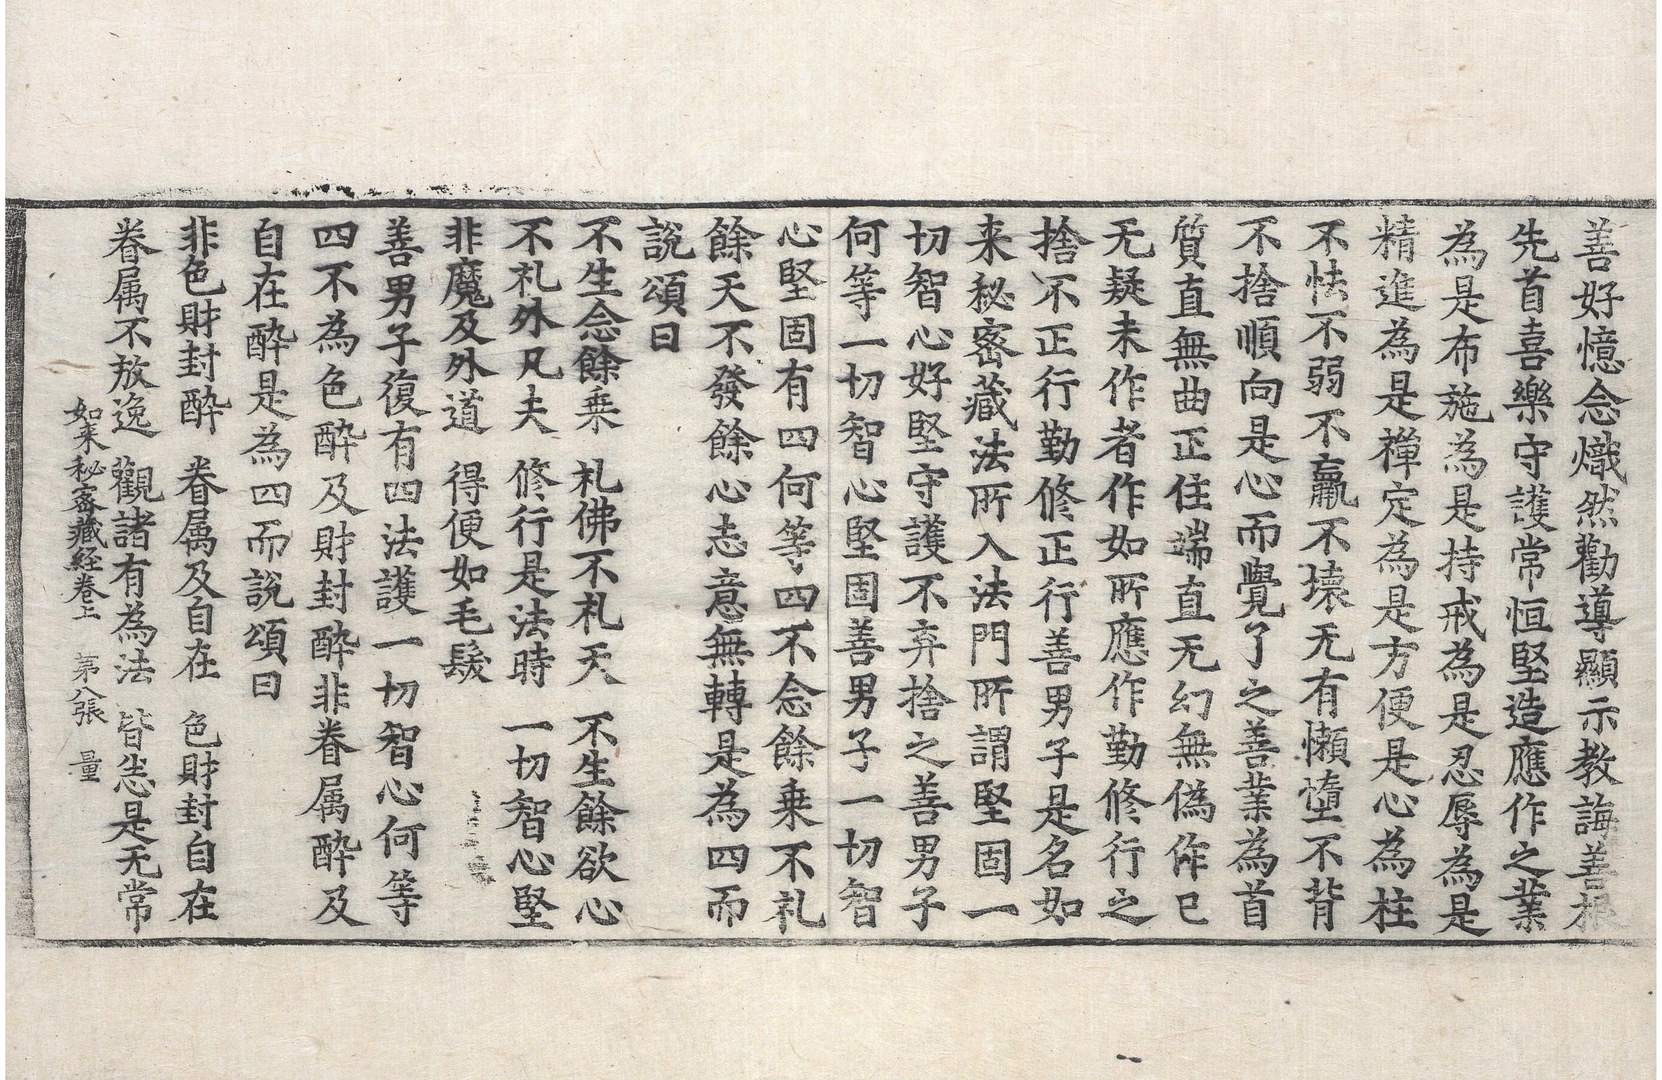 善好憶念熾然勸導顯示教誨善根
先首喜樂守護常恒堅造應作之業
為是布施為是持戒為是忍辱為是
精進為是禪定為是方便是心為柱
不怯不弱不羸不壊无有懶墮不背
不捨順向是心而覺了之善業為首
質直無曲正住端直无幻無偽作已
无疑未作者作如所應作勤修行之
捨不正行勤修正行善男子是名如
来秘密藏法所入法門所謂堅固一
切智心好堅守護不弃捨之善男子
何等一切智心堅固善男子一切智
心堅固有四何等四不念餘乗不礼
餘天不發餘心志意無轉是為四而
說頌曰
不生念餘乗　礼佛不礼天　不生餘欲心
不礼外凡夫　修行是法時　一切智心堅
非魔及外道　得便如毛髮
善男子復有四法護一切智心何等
四不為色酔及財封酔非眷属酔及
自在酔是為四而說頌曰
非色財封酔　眷属及自在　色財封自在
眷属不放逸　觀諸有為法　皆悉是无常
如来秘密藏経卷上　第八張　量